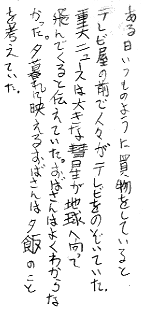 ある日いつものように買物をしていると
テレビ屋の前で人々がテレビをのぞいていた。
重大ニュースは大きな彗星が地球へ向って
飛んでくると伝えていた。おばさんはよくわからな
かった。夕暮れに映えるおばさんは夕飯のこと
を考えていた。